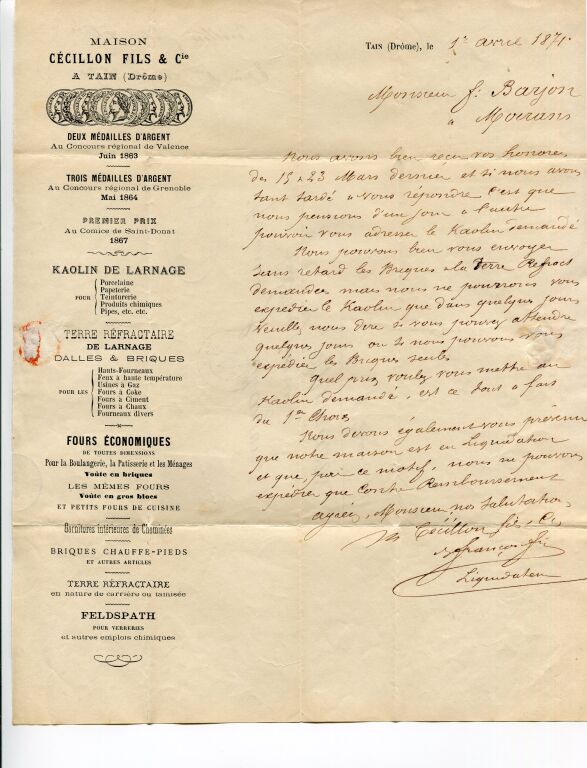 MAISON
CÉCILLON FILS & Cie
A TAIN (Drôme)
DEUX MÉDAILLES D'ARGENT
Au Concours régional de Valence
Juin 1863
TROIS MÉDAILLES D'ARGENT
Au Concours régional de Grenoble
Mai 1864
PREMIER PRIX
Au Comice de Saint-Donat
1867
KAOLIN DE LARNAGE
POUR
Porcelaine
Papeterie
Teinturerie
Produits chimiques
Pipes, etc. etc.
TERRE RÉFRACTAIRE
DE LARNAGE
DALLES & BRIQUES
POUR LES
Hauts-Fourneaux
Feux à haute température
Usines à Gaz
Fours à Coke
Fours à Ciment
Fours à Chaux
Fourneaux divers
FOURS ÉCONOMIQUES
DE TOUTES DIMENSIONS
Pour la Boulangerie, la Patisserie et les Ménages
Voûte en briques
LES MÊMES FOURS
Voûte en gros blocs
ET PETITS FOURS DE CUISINE
Garnitures intérieures de Cheminées
BRIQUES CHAUFFE-PIEDS
ET AUTRES ARTICLES
TERRE RÉFRACTAIRE
en nature de carrière ou tamisée
FELDSPATH
POUR VERRERIES
et autres emplois chimiques
TAIN (Drôme), le 1r avril 1871.
Monsieur f. Barjon
à Moirans
Nous avons bien reçu vos honorées
des 15 & 23 Mars dernier et si nous avons
tant tardé à vous répondre c'est que
nous pensions d'un jour à l'autre
pouvoir vous adresser le Kaolin demandé
Nous pouvons bien vous envoyer
sans retard les Briques & la Terre Refract
demandées mais nous ne pourrons vous
expédier le Kaolin que dans quelques jours
Veuillez nous dire si vous pouvez attendre
quelques jours ou si nous pouvons vous
expédier les Briques seules
Quel prix voulez vous mettre au
Kaolin demandé, est ce tout à fait
du 1er Choix
Nous devons également vous prévenir
que notre maison est en Liquidation
et que, pour ce motif, nous ne pouvons
expédier que Contre Remboursement
agréez, Monsieur, nos Salutations
Cécillon fils & Cie
Liquidateur